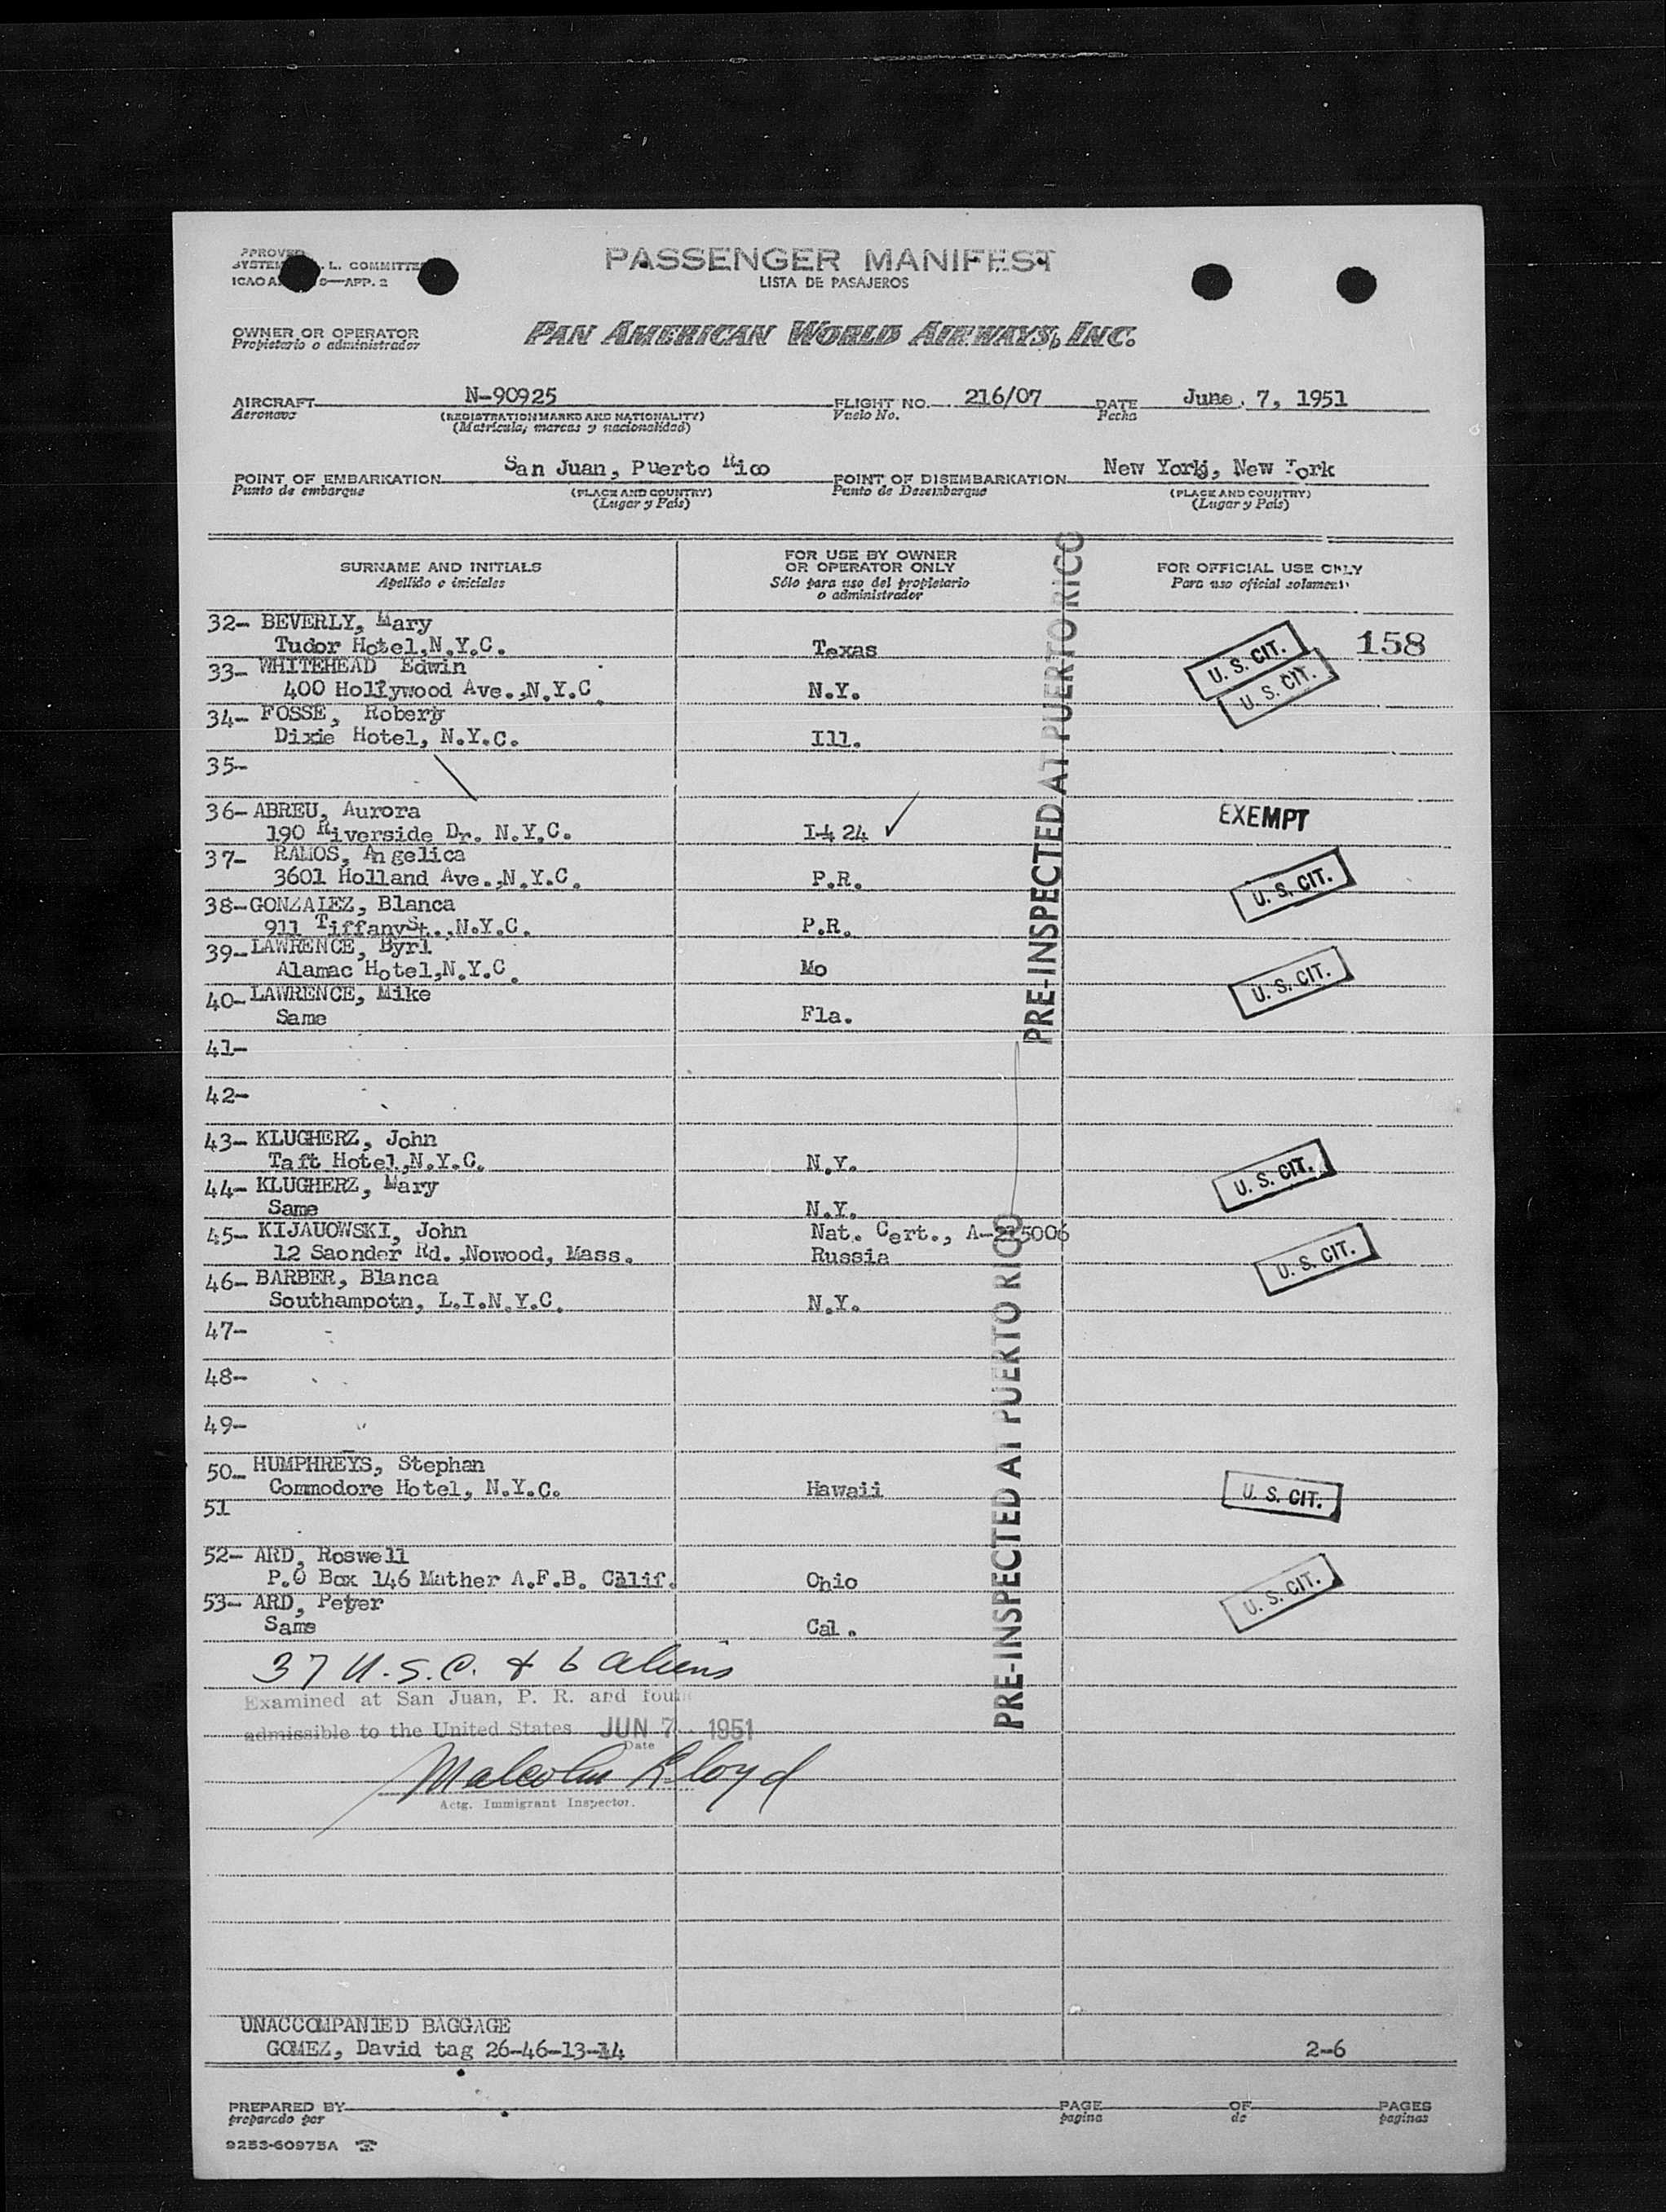 PASSENGER MANIFEST
LISTA DE PASAJEROS
ICAO
APP. 2
L. COMMITTEE
OWNER OR OPERATOR
Propietario o administrador
PAN AMERICAN WORLD AIRWAYS, INC.
AIRCRAFT N-90925 FLIGHT NO. 216/07 DATE June. 7, 1951
Aeronave (REGISTRATION MARKS AND NATIONALITY) Vuelo No. Fecha
(Matrícula, marcas y nacionalidad)
POINT OF EMBARKATION San Juan, Puerto Rico POINT OF DISEMBARKATION New York, New York
Punto de embarque (PLACE AND COUNTRY) Punto de Desembarque (PLACE AND COUNTRY)
(Lugar y País) (Lugar y País)
SURNAME AND INITIALS FOR USE BY OWNER OR OPERATOR ONLY FOR OFFICIAL USE ONLY
Apellido e iniciales Sólo para uso del propietario o administrador Para uso oficial solamente
32- BEVERLY, Mary
Tudor Hotel,N.Y.C. Texas U. S. CIT. 158
33- WHITEHEAD Edwin
400 Hollywood Ave.,N.Y.C. N.Y. U. S. CIT.
34- FOSSE, Roberg
Dixie Hotel, N.Y.C. Ill.
35-
36- ABREU, Aurora EXEMPT
190 Riverside Dr. N.Y.C. I-4 24 ✓
37- RAMOS, Angelica
3601 Holland Ave.,N.Y.C. P.R. U. S. CIT.
38-GONZALEZ, Blanca
911 TiffanySt.,N.Y.C. P.R.
39-LAWRENCE, Byrl
Alamac Hotel,N.Y.C. Mo U. S. CIT.
40-LAWRENCE, Mike
Same Fla.
41-
42-
43- KLUGHERZ, John
Taft Hotel,N.Y.C. N.Y. U. S. CIT.
44- KLUGHERZ, Mary
Same N.Y.
45- KIJAUOWSKI, John Nat. Cert., 
12 Saonder Rd.,Nowood, Mass. Russia U. S. CIT.
46- BARBER, Blanca
Southampotn, L.I.N.Y.C. N.Y.
47-
48-
49-
50- HUMPHREYS, Stephan
Commodore Hotel, N.Y.C. Hawaii U. S. CIT.
51
52- ARD, Roswell
P.O Box 146 Mather A.F.B. Calif. Ohio U. S. CIT.
53- ARD, Peter
Same Cal.
PRE-INSPECTED AT PUERTO RICO
PRE-INSPECTED AT PUERTO RICO
37 U.S.C. & 6 aliens
Examined at San Juan, P. R. and found
admissible to the United States JUN 7 1951
Date
Malcolm Lloyd
Actg. Immigrant Inspector.
UNACCOMPANIED BAGGAGE
GOMEZ, David tag 26-46-13-14 2-6
PREPARED BY PAGE OF PAGES
preparado por pagina de paginas
9253-60975A